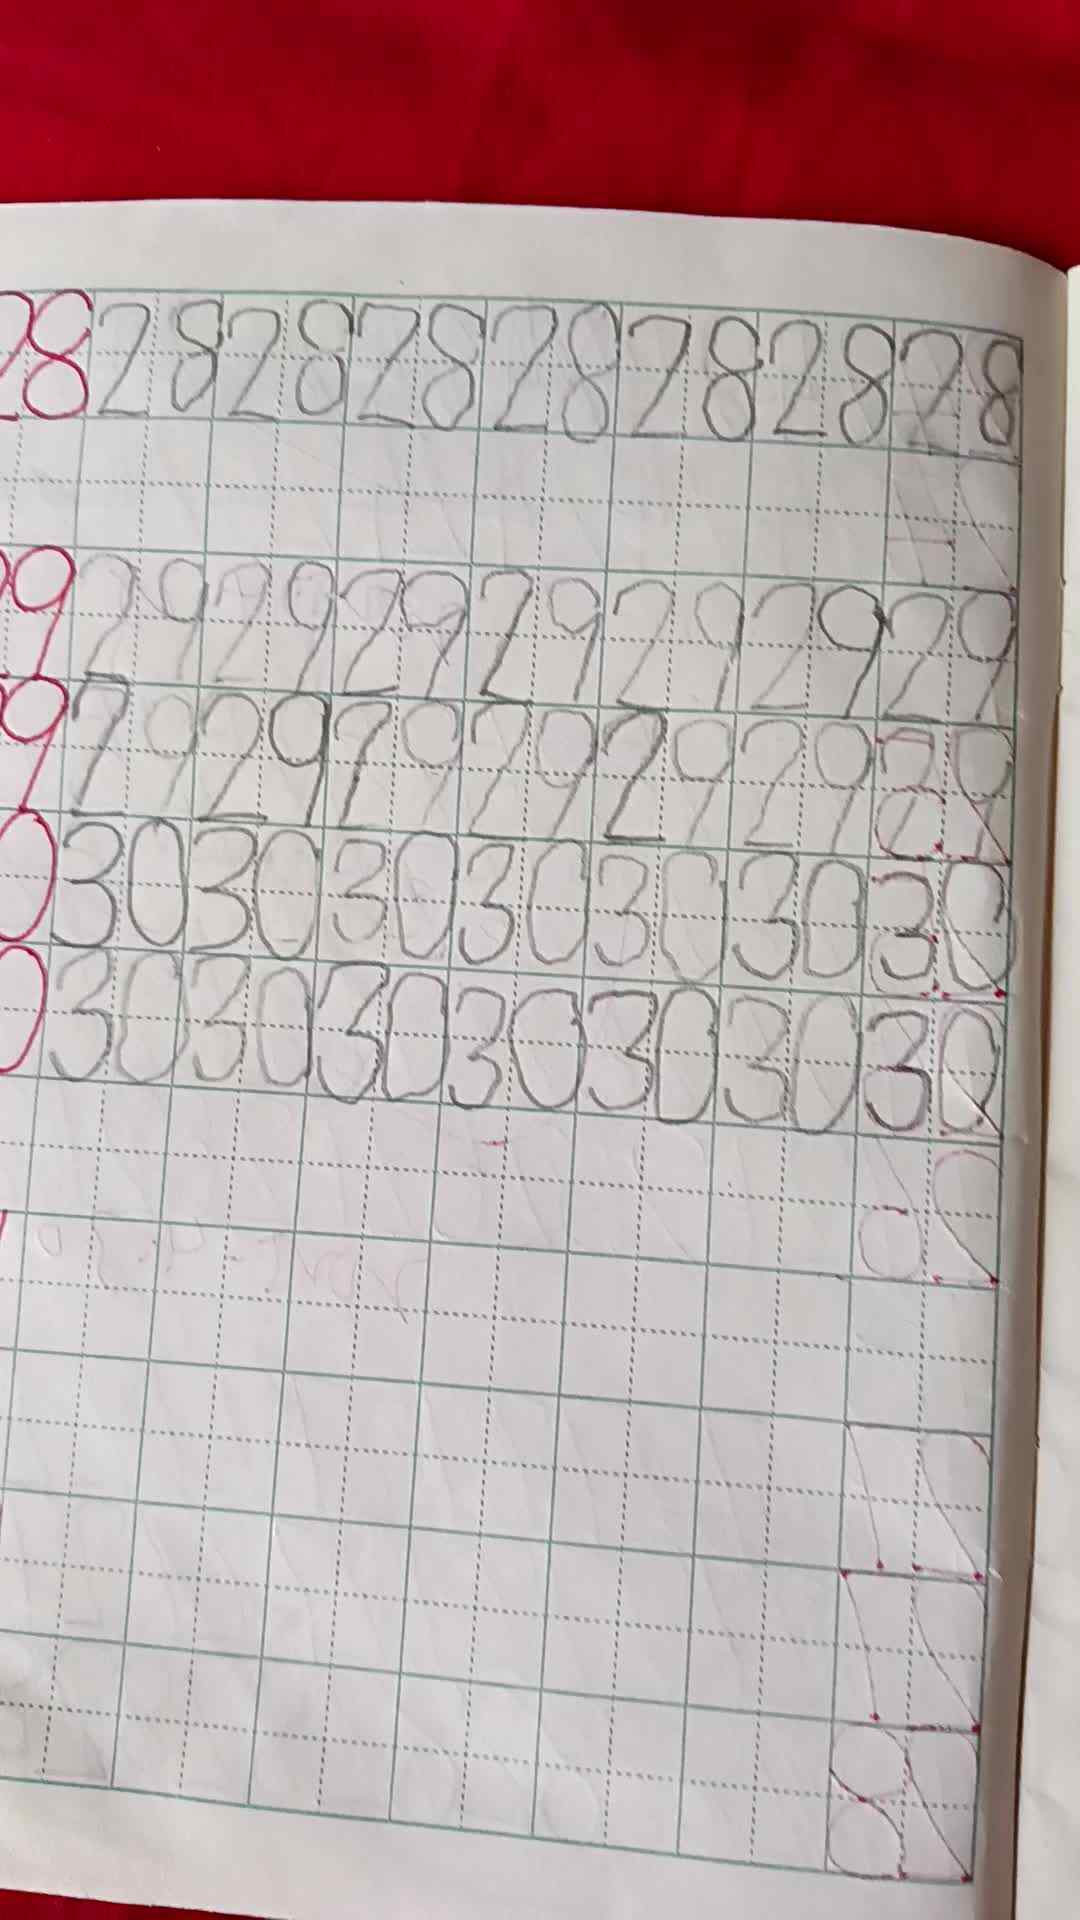 28 28 28 28 28 28 28 28
9 29 29 29 29 29 29 29
9 29 29 29 29 29 29 29
0 30 30 30 30 30 30 30
0 30 30 30 30 30 30 30